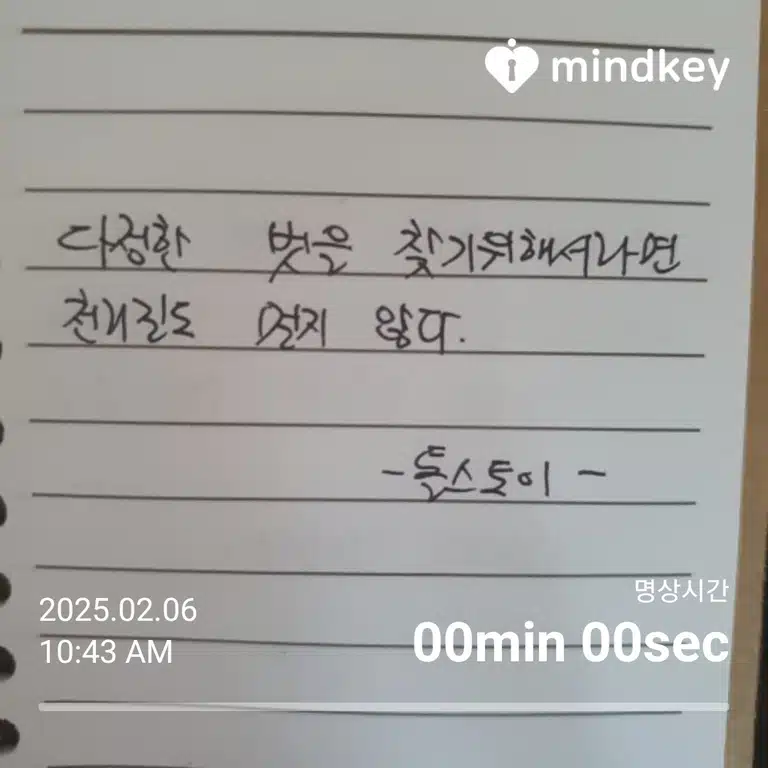 mindkey
다정한 벗을 찾기위해서라면
천리길도 멀지 않다.
-톨스토이-
명상시간
2025.02.06
10:43 AM
00min 00sec